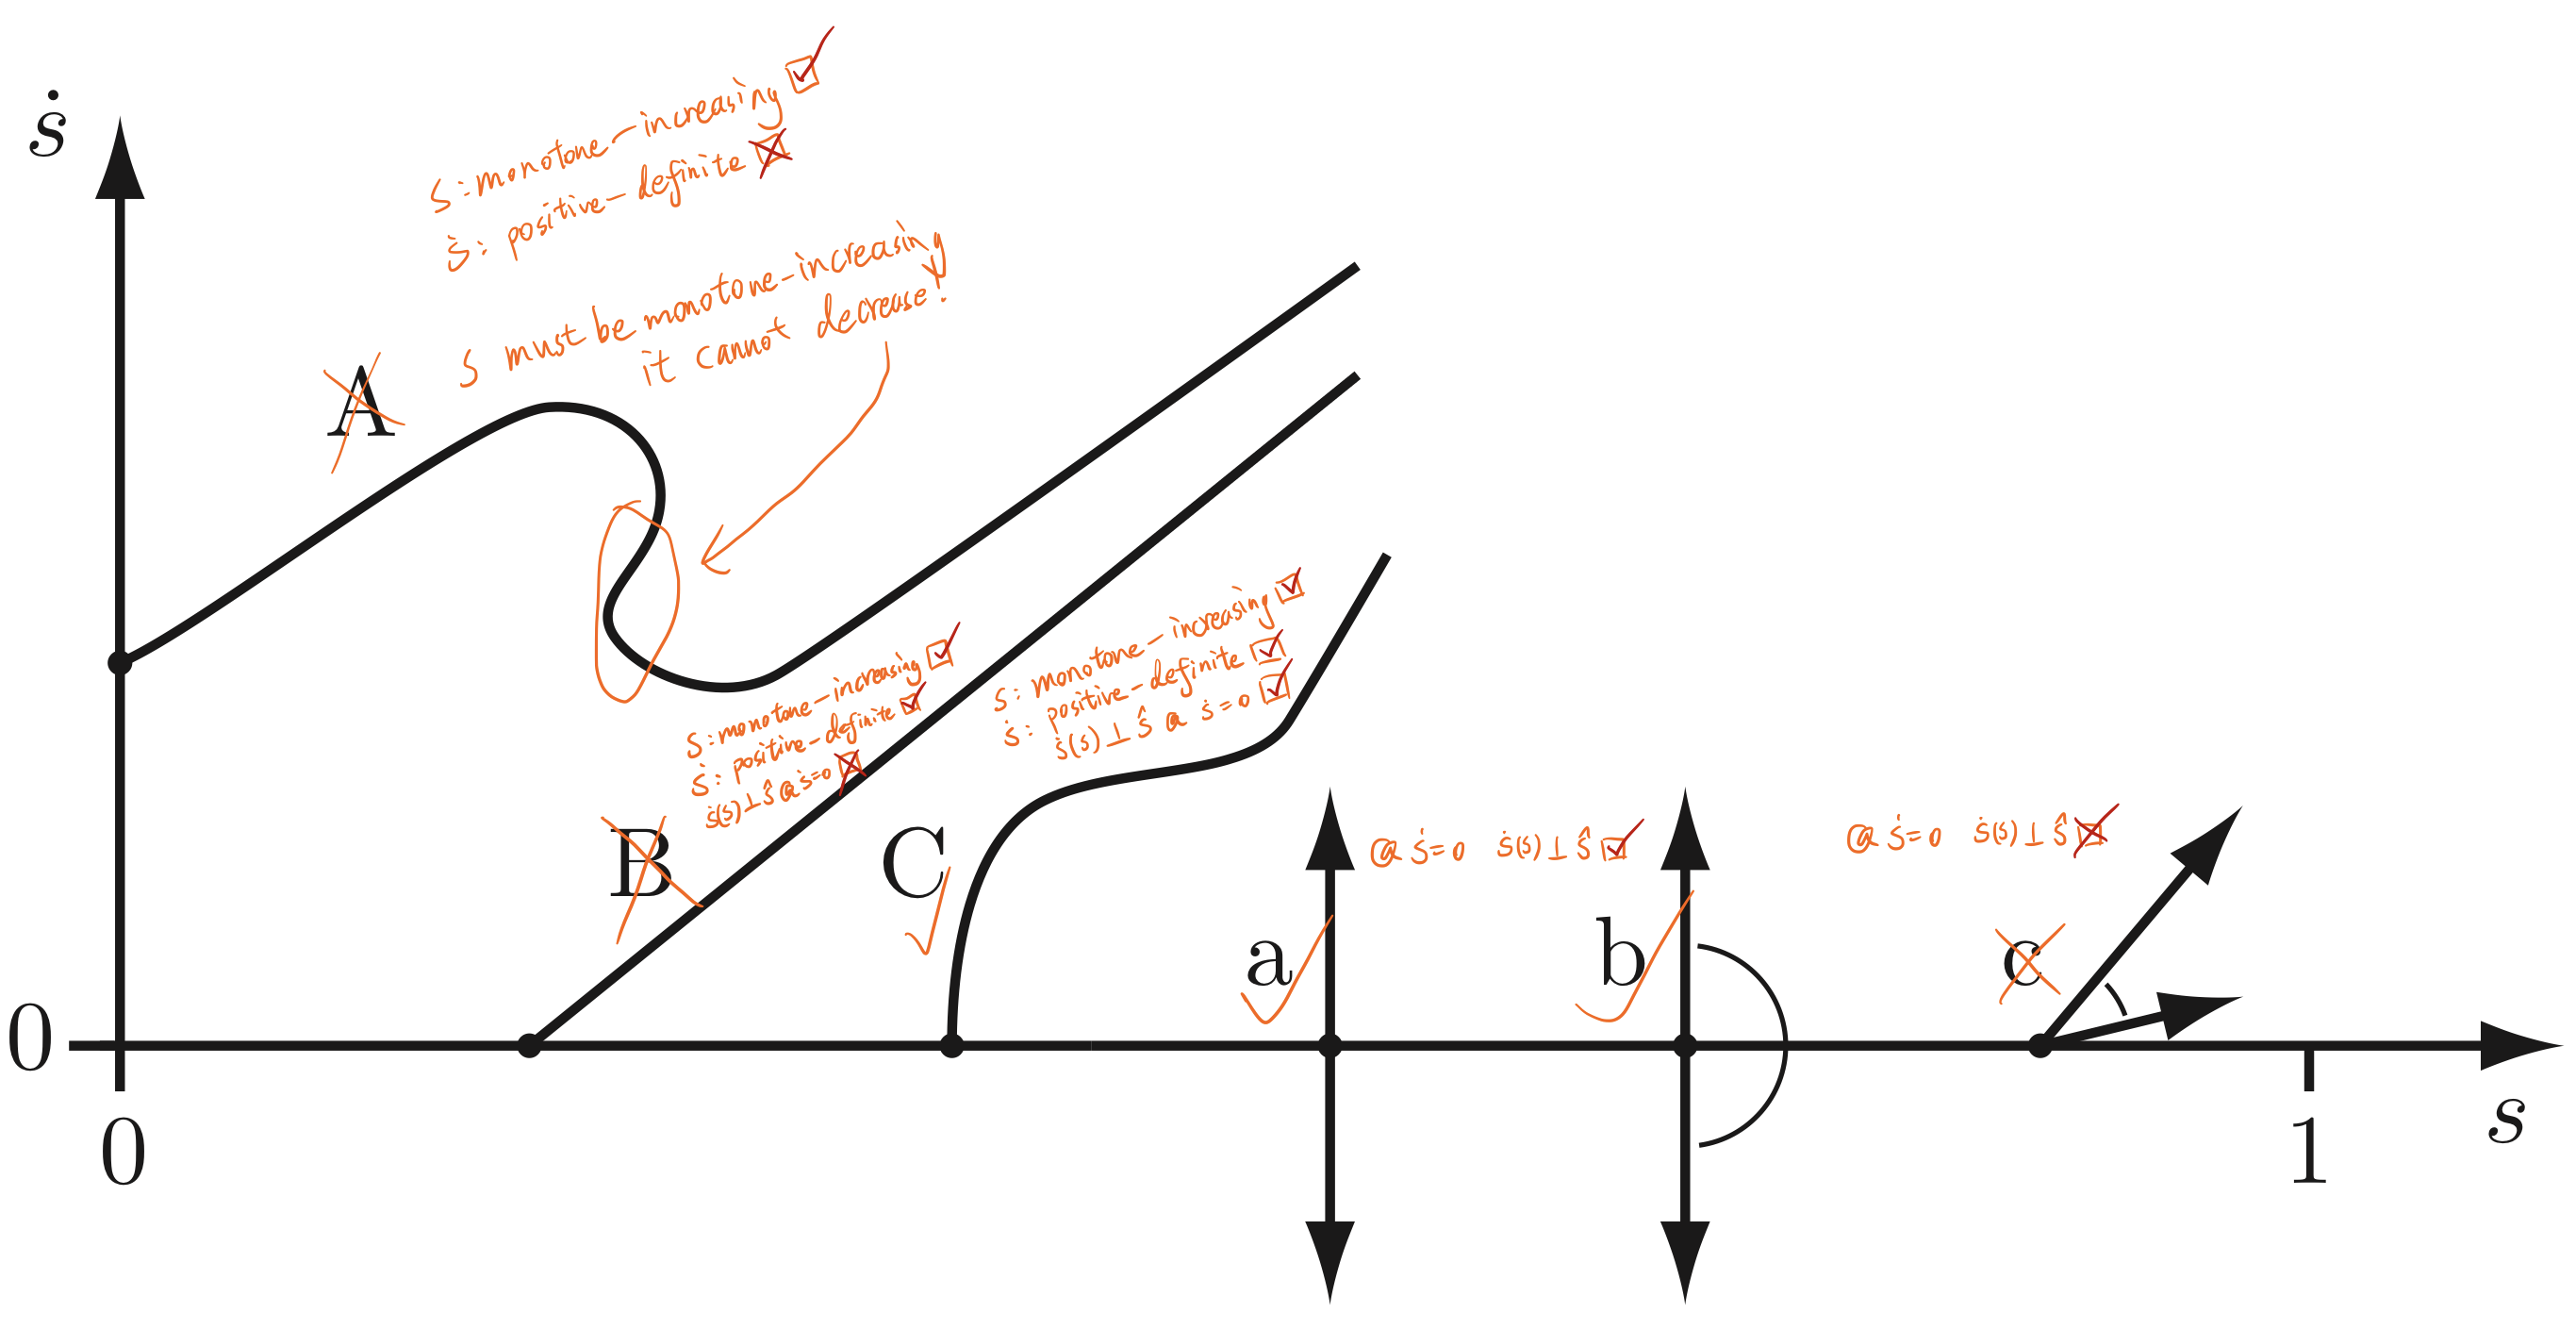 ṡ
s: monotone-increasing ☑
ṡ: positive-definite ☒
s must be monotone-increasing
it cannot decrease!
A
s: monotone-increasing ☑
ṡ: positive-definite ☑
ṡ(s) ⊥ ŝ @ ṡ=0 ☒
B
s: monotone-increasing ☑
ṡ: positive-definite ☑
ṡ(s) ⊥ ŝ @ ṡ=0 ☑
C
@ ṡ=0 ṡ(s) ⊥ ŝ ☑
@ ṡ=0 ṡ(s) ⊥ ŝ ☒
a
b
c
0
0
1
s